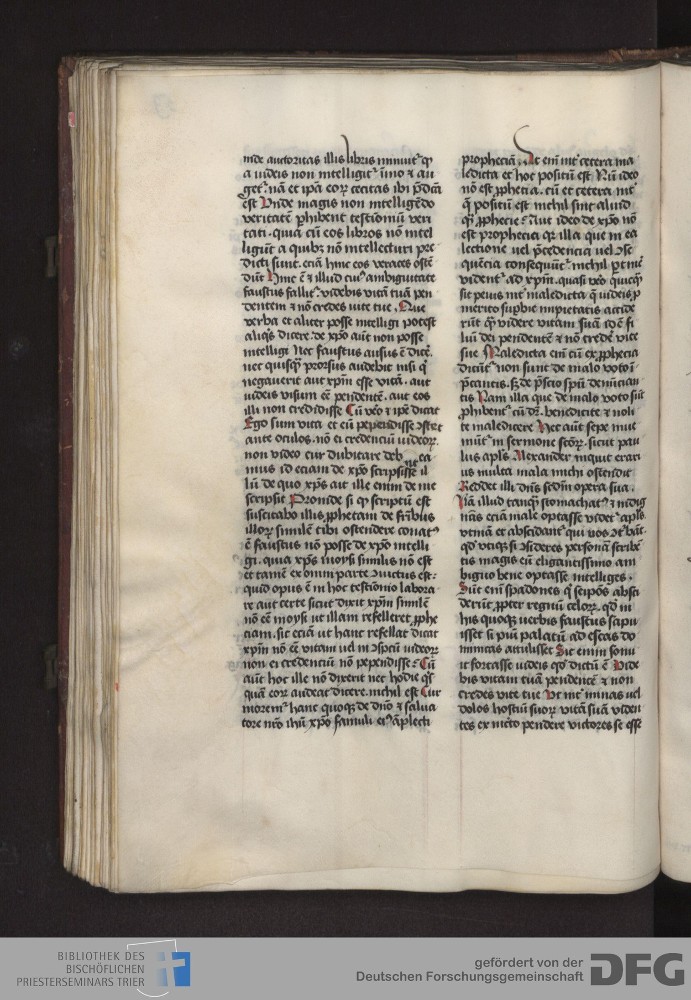 inde auctoritas illis libris minuit᷑ qͥ
a iudeis non intelligit᷑ īmo ⁊ au
get᷑ nā et ip̄a eoꝝ cecitas ibi p̄dcā
est Vnde magis non intelligēdo
veritatē phibent testimoniū veri
tati. quia cū eos libros nō intel
ligūt a quibꝫ nō intellecturi pre
dicti sunt. eciā hinc eos veraces osten
dūt Hinc ē ⁊ illud cuiꝰ ambiguitate
faustus fallit᷑. videbis vitā tuā pen
dentem ⁊ nō credes vite tue. Que
verba et aliter posse intelligi potest
aliqͥs dicere. de xp̄o aūt non posse
intelligi nec faustus ausus ē dicē.
nec quisq̄ prorsus audebit nisi qͥ
negauerit aut xp̄m esse vitā. aut
iudeis visum eē pendentē. aut eos
illi non credidisse Cū v̄o ⁊ ip̄e dicat
Ego sum vita et eū pependisse ↄstet
ante oculos. nō ei credenciū iudeoꝝ.
non video cur dubitare deb
mus id eciam de xp̄o scripsisse il
lū de quo xp̄s ait ille enim de me
scripsit Proinde si qͥ scriptū est
suscitabo illis ꝓphetam de fr̄ibus
illoꝝ similē tibi ostendere conatꝰ
ē faustus nō posse de xp̄o intelli
gi. quia xp̄s moysi similis nō est
et tamē ex omni parte ↄuictus est:
quid opus ē in hoc testīonio labora
re aut certe sicut dixit xp̄m similē
nō eē moysi ut illam refelleret ꝓphe
ciam. sic eciā ut hanc refellat dicat
xp̄m nō eē vitam uel in ↄspcū iudeoꝝ
non ei credenciū nō pependisse: Cū
aūt hoc ille nō dixerit nec hodie qͥs
quā eoꝝ audeat dicere. nichil est Cur
moremᷣ hanc quoqꝫ de dn̄o ⁊ salua
tore nr̄o ihū xp̄o famuli eiꝰ āplecti
propheciā. At em̄ int᷑ cetera ma
ledicta et hoc positū est Nū ideo
nō est ꝓphecia. cū et cetera int᷑
q̄ positū est nichil sint aliud
qͣꝫ ꝓphecie: Aut ideo de xp̄o nō
est propheciei qꝛ illa que in ea
lectione uel p̄cedencia uel ↄse
quēcia consequūt᷑. nichil ꝑtinē
videnť ad xp̄m. quasi v̄o quicq̄
sit peius int᷑ maledicta q̄ iudeis ꝓ
merito suꝑbie impietatis accide
rūt q̄ videre vitam suā id ē fi
liū dei pendentē ⁊ nō credē vite
sue Maledicta em̄ cū ex ꝓphecia
dicūt᷑ non sunt de malo voto ī
p̄cantis. sꝫ de p̄scio sp̄u denūcian
tis Nam illa que de malo voto fiūt
ꝓhibent᷑ cū d᷑. benedicite ⁊ noli
te maledicere Hec aūt sepe inue
niūt᷑ in sermone sc̄oꝝ. sicut pau
lus apl̄s Alexander inquit erari
us multa mala michi ostendit
Reddet illi dn̄s scdm̄ opera sua.
Nā illud tanq̄ stomachatꝰ ⁊ indig
nās eciā male optasse videt᷑ apl̄s.
vtinā et abscidant᷑ qui uos ↄt᷑bāt.
qd̓ vtiqꝫ si ↄsideres personā scribē
tis magis eū eligantissimo am
biguo bene optasse intelliges.
Sūt em̄ spadones q̄ seipōs absci
derūt ꝓpter regnū celoꝝ. qd̓ in
his quoqꝫ verbis faustus sapu
isset si piū palatū ad escas do
minicas attulisset Sic enim sonu
it fortasse iudeis qd̓ dictū ē Vide
bis vitam tuā pendentē ⁊ non
credes vite tue Vt int᷑ minas uel
dolos hostiū suoꝝ vitā suā viden
tes ex incto pendere victores se esse
BIBLIOTHEK DES
BISCHÖFLICHEN
PRIESTERSEMINARS TRIER
gefördert von der
Deutschen Forschungsgemeinschaft
DFG